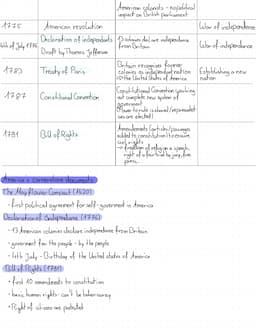 American colonists - no political
impact on British parliament
1775 American revolution War of independence
4th of July 1776 Declaration of independence 13 colonies declare independence War of independence
Draft by Thomas Jefferson from Britain
1783 Treaty of Paris Britain recognizes former Establishing a new
colonies as independent nation nation
→ the United States of America
1787 Constitutional Convention Constitutional Convention working
out complete new system of
government
are elected)
1791 Bill of Rights Amendments (articles/passages
added to constitution) to ensure
civil rights
→ freedom of religion & speech,
right of a fair trial by jury, free
press,
America's cornerstone documents
The Mayflower Compact (1620)
- first political agreement for self-government in America
Declaration of Independence (1776)
- 13 American colonies declare independence from Britain
- government for the people - by the people
- 4th July - Birthday of the United States of America
Bill of Rights (1791)
• first 10 amendments to constitution
- basic human rights - can't be taken away
• Right of citizens are protected